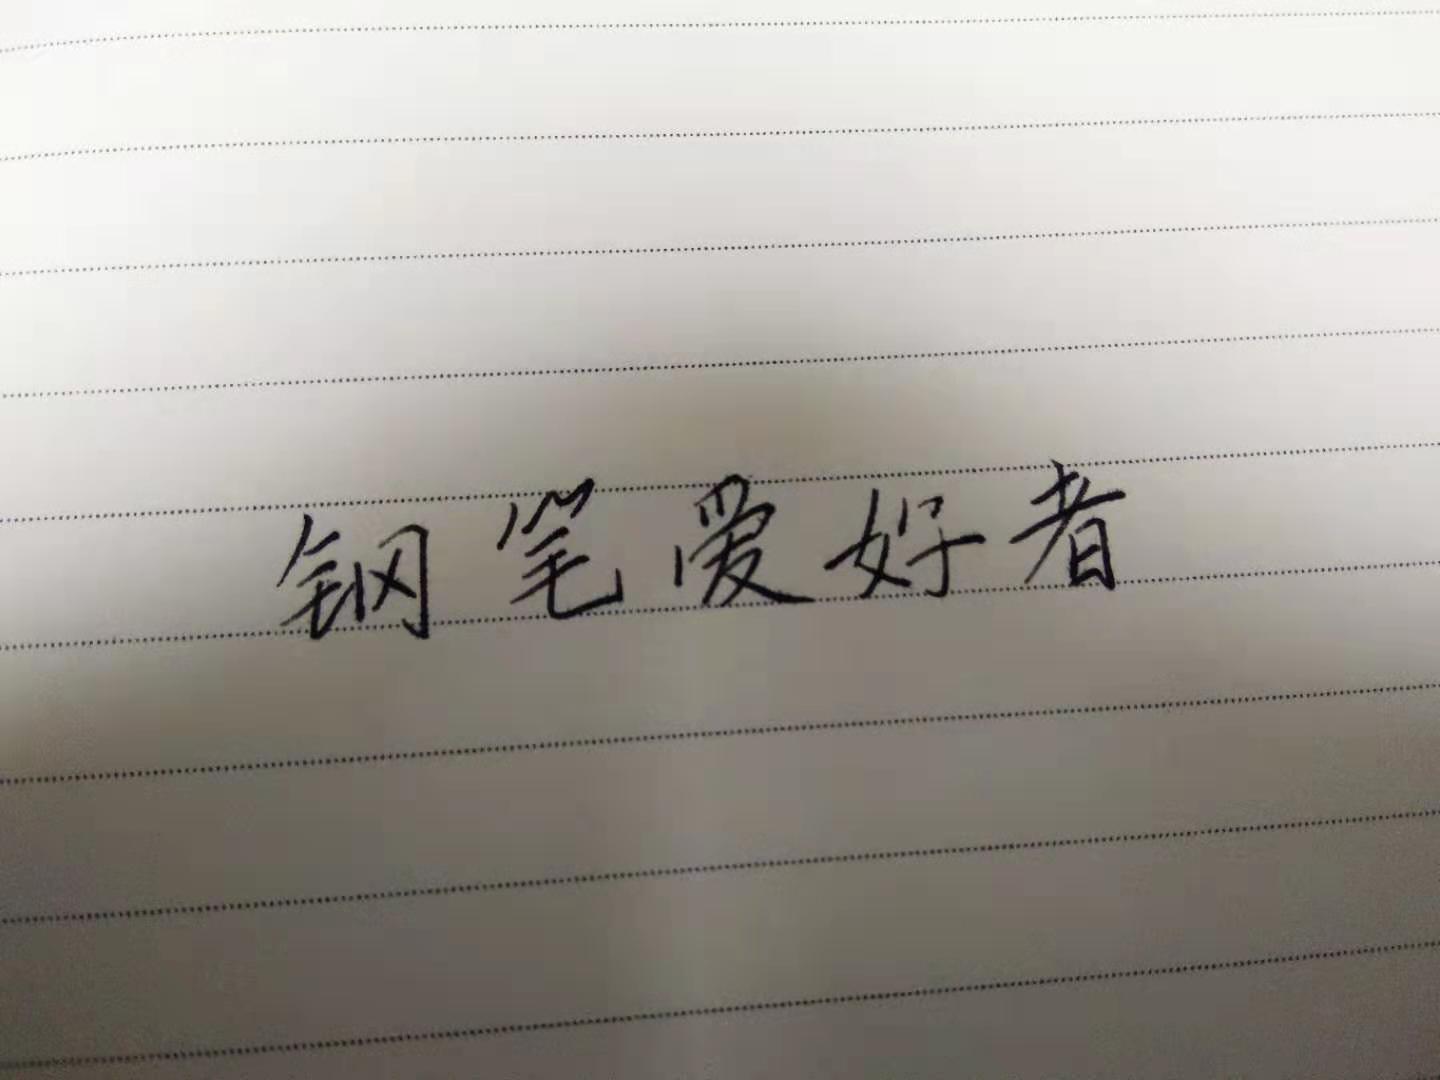 钢笔爱好者